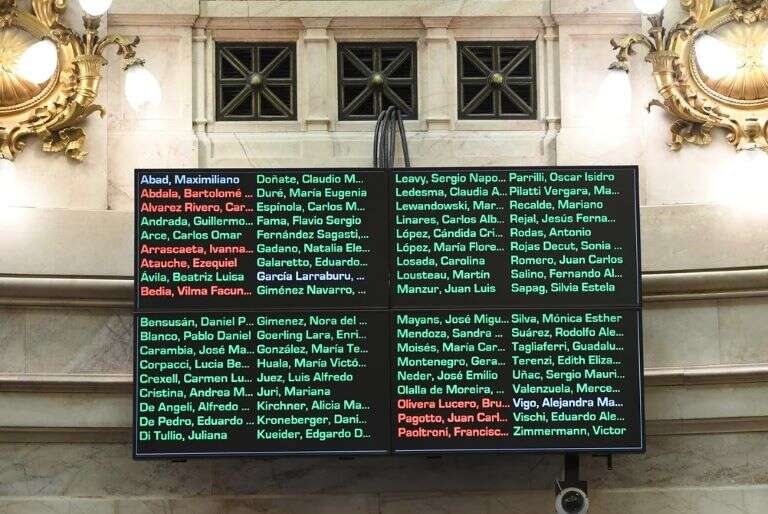 Abad, Maximiliano
Abdala, Bartolomé ...
Alvarez Rivero, Car...
Andrada, Guillermo...
Arce, Carlos Omar
Arrascaeta, Ivanna...
Atauche, Ezequiel
Ávila, Beatriz Luisa
Bedia, Vilma Facun...
Bensusán, Daniel P...
Blanco, Pablo Daniel
Carambia, José Ma...
Corpacci, Lucia Be...
Crexell, Carmen Lu...
Cristina, Andrea M...
De Angeli, Alfredo ...
De Pedro, Eduardo ...
Di Tullio, Juliana
Doñate, Claudio M...
Duré, María Eugenia
Espínola, Carlos M...
Fama, Flavio Sergio
Fernández Sagasti,...
Gadano, Natalia Ele...
Galaretto, Eduardo...
García Larraburu, ...
Giménez Navarro, ...
Gimenez, Nora del ...
Goerling Lara, Enri...
González, María Te...
Huala, María Victó...
Juez, Luis Alfredo
Juri, Mariana
Kirchner, Alicia Ma...
Kroneberger, Dani...
Kueider, Edgardo D...
Leavy, Sergio Napo...
Ledesma, Claudia A...
Lewandowski, Mar...
Linares, Carlos Alb...
López, Cándida Cri...
López, María Flore...
Losada, Carolina
Lousteau, Martín
Manzur, Juan Luis
Mayans, José Migu...
Mendoza, Sandra ...
Moisés, María Car...
Montenegro, Gera...
Neder, José Emilio
Olalla de Moreira, ...
Olivera Lucero, Bru...
Pagotto, Juan Carl...
Paoltroni, Francisc...
Parrilli, Oscar Isidro
Pilatti Vergara, Ma...
Recalde, Mariano
Rejal, Jesús Ferna...
Rodas, Antonio
Rojas Decut, Sonia ...
Romero, Juan Carlos
Salino, Fernando Al...
Sapag, Silvia Estela
Silva, Mónica Esther
Suárez, Rodolfo Ale...
Tagliaferri, Guadalu...
Terenzi, Edith Eliza...
Uñac, Sergio Mauri...
Valenzuela, Merce...
Vigo, Alejandra Ma...
Vischi, Eduardo Ale...
Zimmermann, Victor